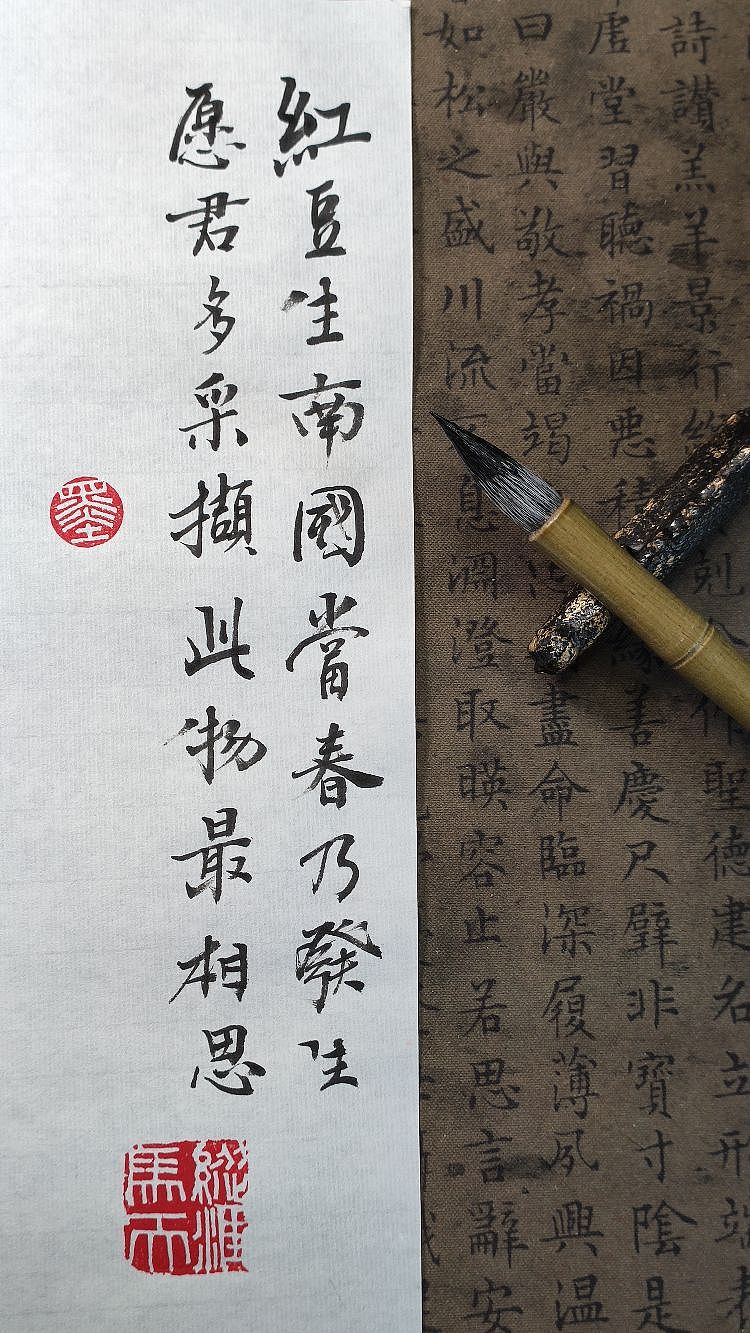 詩讚羔羊景行維剋念作聖德建名立形端表
虛堂習聽禍因惡積緣善慶尺璧非寶寸陰是
曰嚴與敬孝當竭盡命臨深履薄夙興温
如松之盛川流不息淵澄取暎容止若思言辭安
紅豆生南國當春乃發生
愿君多采擷此物最相思